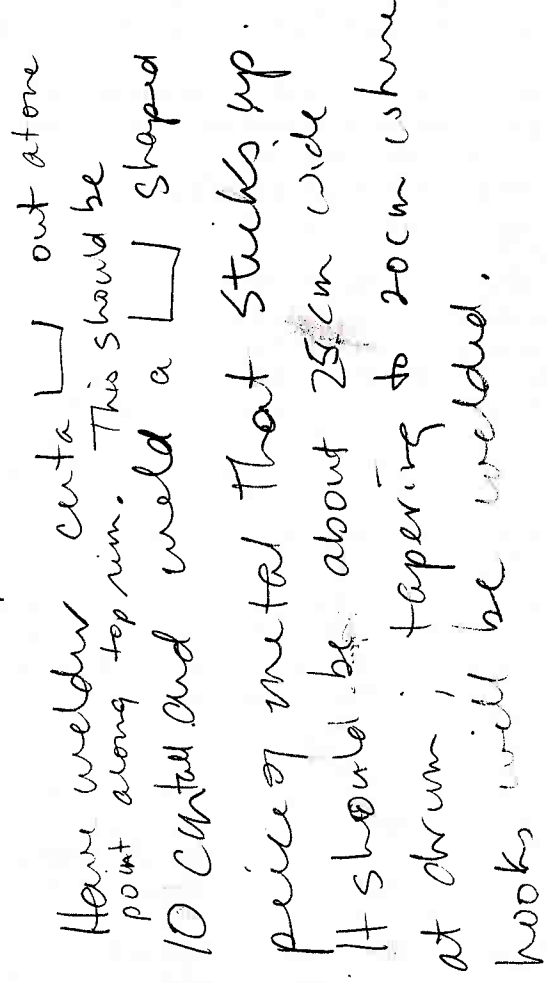 Have welder cut a out at one
point along top rim. This should be
10 cm tall and weld a shaped
peice of metal that sticks up.
It should be about 25cm wide
at drum, tapering to 20cm where
hooks will be welded.